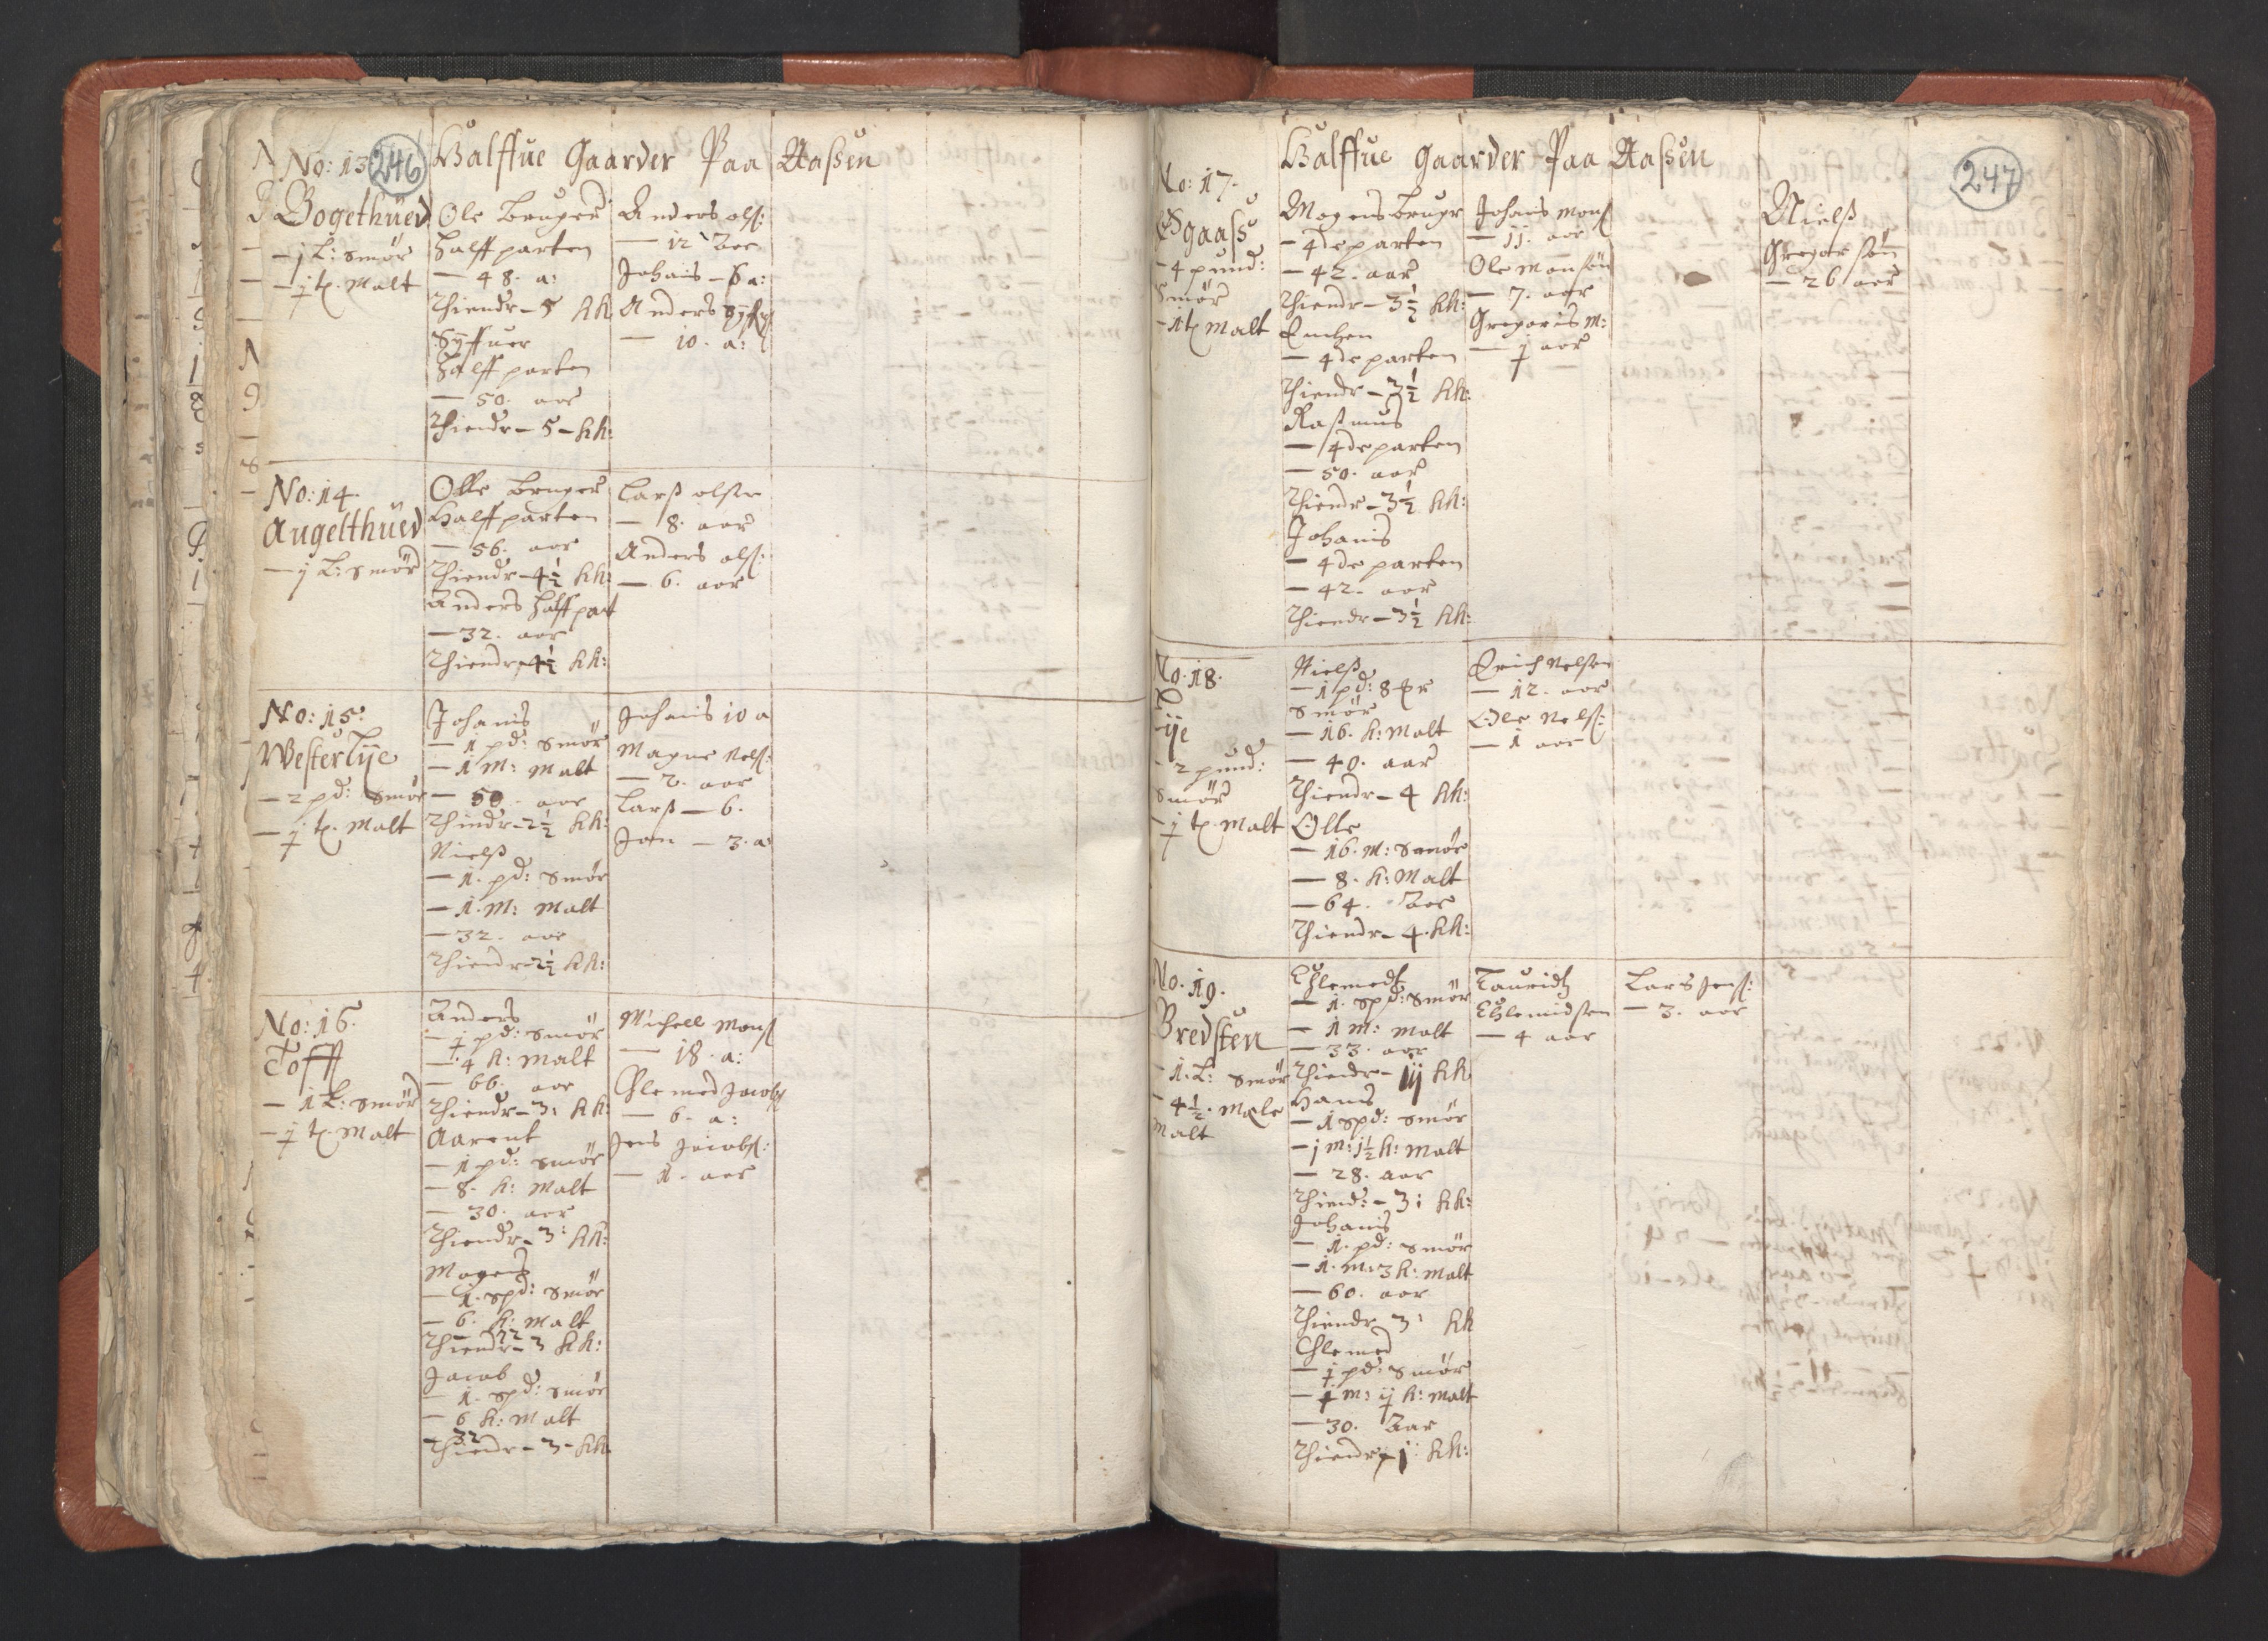 246
Halffue Gaarder Paa Aassen
No: 13
Bogethued
- j L: smør
- j t. Malt
Ole bruger
halffparten
- 48. a:
Thiendr - 5 kh
Syffuer
halff parten
- 50. aar
Thiendr - 5 - kh:
Anders olß:
- 12 Aar
Johanis - 6 a:
Anders
- 10. a:
No: 14.
Augelthued
- j L: smør
Olle bruger
Halffparten
- 56. aar
Thiendr - 4½ kh:
Anders halffpart
- 32. aar
Thiendr - 4½ kh:
Larß olßen
- 8. aar
Anders olß:
- 6. aar
No: 15:
Westerlije
- 2 pd: smør
- j t. Malt
Johanis
- 1 pd: smør
- 1 M: Malt
- 50. aar
Thiendr - 2½ kh:
Nielß
- 1. pd: smør
- 1. M: Malt
- 32. aar
Thiendr - 2½ kh:
Johanis 10 a
Magne Nelß:
- 7. aar
Larß - 6.
Jon - 3. a
No: 16.
Tofft
- 1 L: smør
- j t. Malt
Anders
- j pd: smør
- 4 k: Malt
- 66. aar
Thiendr - 3: kh:
Aarent
- 1 pd: smør
- 8. k: Malt
- 30. aar
Thiendr - 3: kh:
Mogens
- 1. spd: smør
- 6. k: Malt
- 22
Thiendr - 3 kh:
Jacob
- 1. spd: smør
- 6 k: Malt
32
Thiendr - 3 - kh
Michell Monß
- 18. a:
Chlemed Jacobß
- 6. a:
Jens Jacobß:
- 1. aar
247
Halffue gaarder Paa Aassen
No: 17.
Ggaass
- 4 pund:
smør
- 1 t Malt
Mogens brugr
- 4de parten
- 42. aar
Thiendr - 3½ kh:
Enchen
- 4de parten
Thiendr - 3½ kh:
Rasmus
- 4de parten
- 50. aar
Thiendr - 3½ kh:
Johanis
- 4de parten
- 42. aar
Thiendr - 3½ kh:
Johanis Monß
- 11. aar
Ole Monsøn
- 7. aar
Gregoris M:
- j aar
Nielß
Gregorsøn
- 26 aar
No. 18.
Lije
- 2 pund:
smør
- j t. Malt
Nielß
- 1 pd: 8
smør
- 16. k: Malt
- 40. aar
Thiendr - 4 kh:
Olle
- 16. M: smør
- 8. k: Malt
- 64. Aar
Thiendr - 4. kh:
Erich Nelsen
- 12. aar
Ole Nelß:
- 1 aar
No. 19.
Bredsten
- 1. L: smør
- 4½. Male
Malt
Chlemedt
- 1. spd: smør
- 1 M: Malt
- 33. aar
Thiendr - iij kh
Hans
- 1 spd: smør
- j M: 1½ k: Malt
- 28. aar
Thiend: - 3: kh:
Johanis
- 1. pd: smør
- 1. M: 3 k: Malt
- 60. aar
Thiendr 3: kh
Chlemed
- j pd: smør
- j M: ij k: Malt
- 30. Aar
Thiendr j: kh:
Lauridtz
Chlemidsen
- 4 aar
Lars Jenß:
- 3. aar